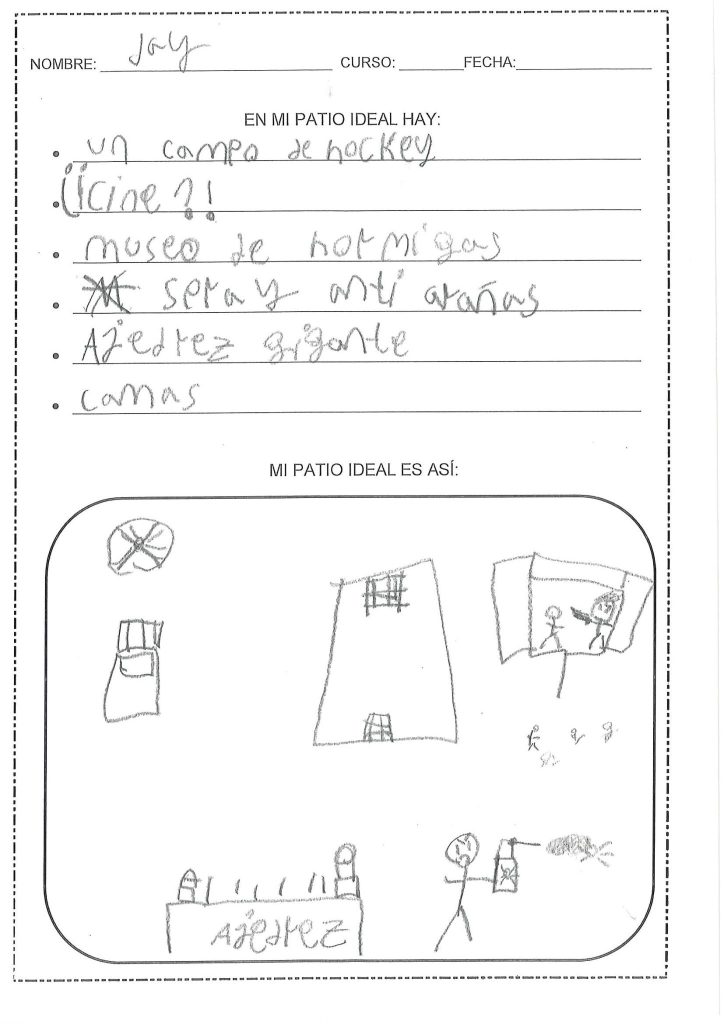 NOMBRE: Jay CURSO: FECHA:
EN MI PATIO IDEAL HAY:
• un campo de hockey
• ¡¡cine?!
• museo de hormigas
• M seray anti arañas
• Ajedrez gigante
• camas
MI PATIO IDEAL ES ASÍ:
Ajedrez